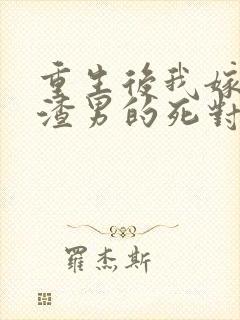 重生後我嫁
渣男的死對
羅杰斯